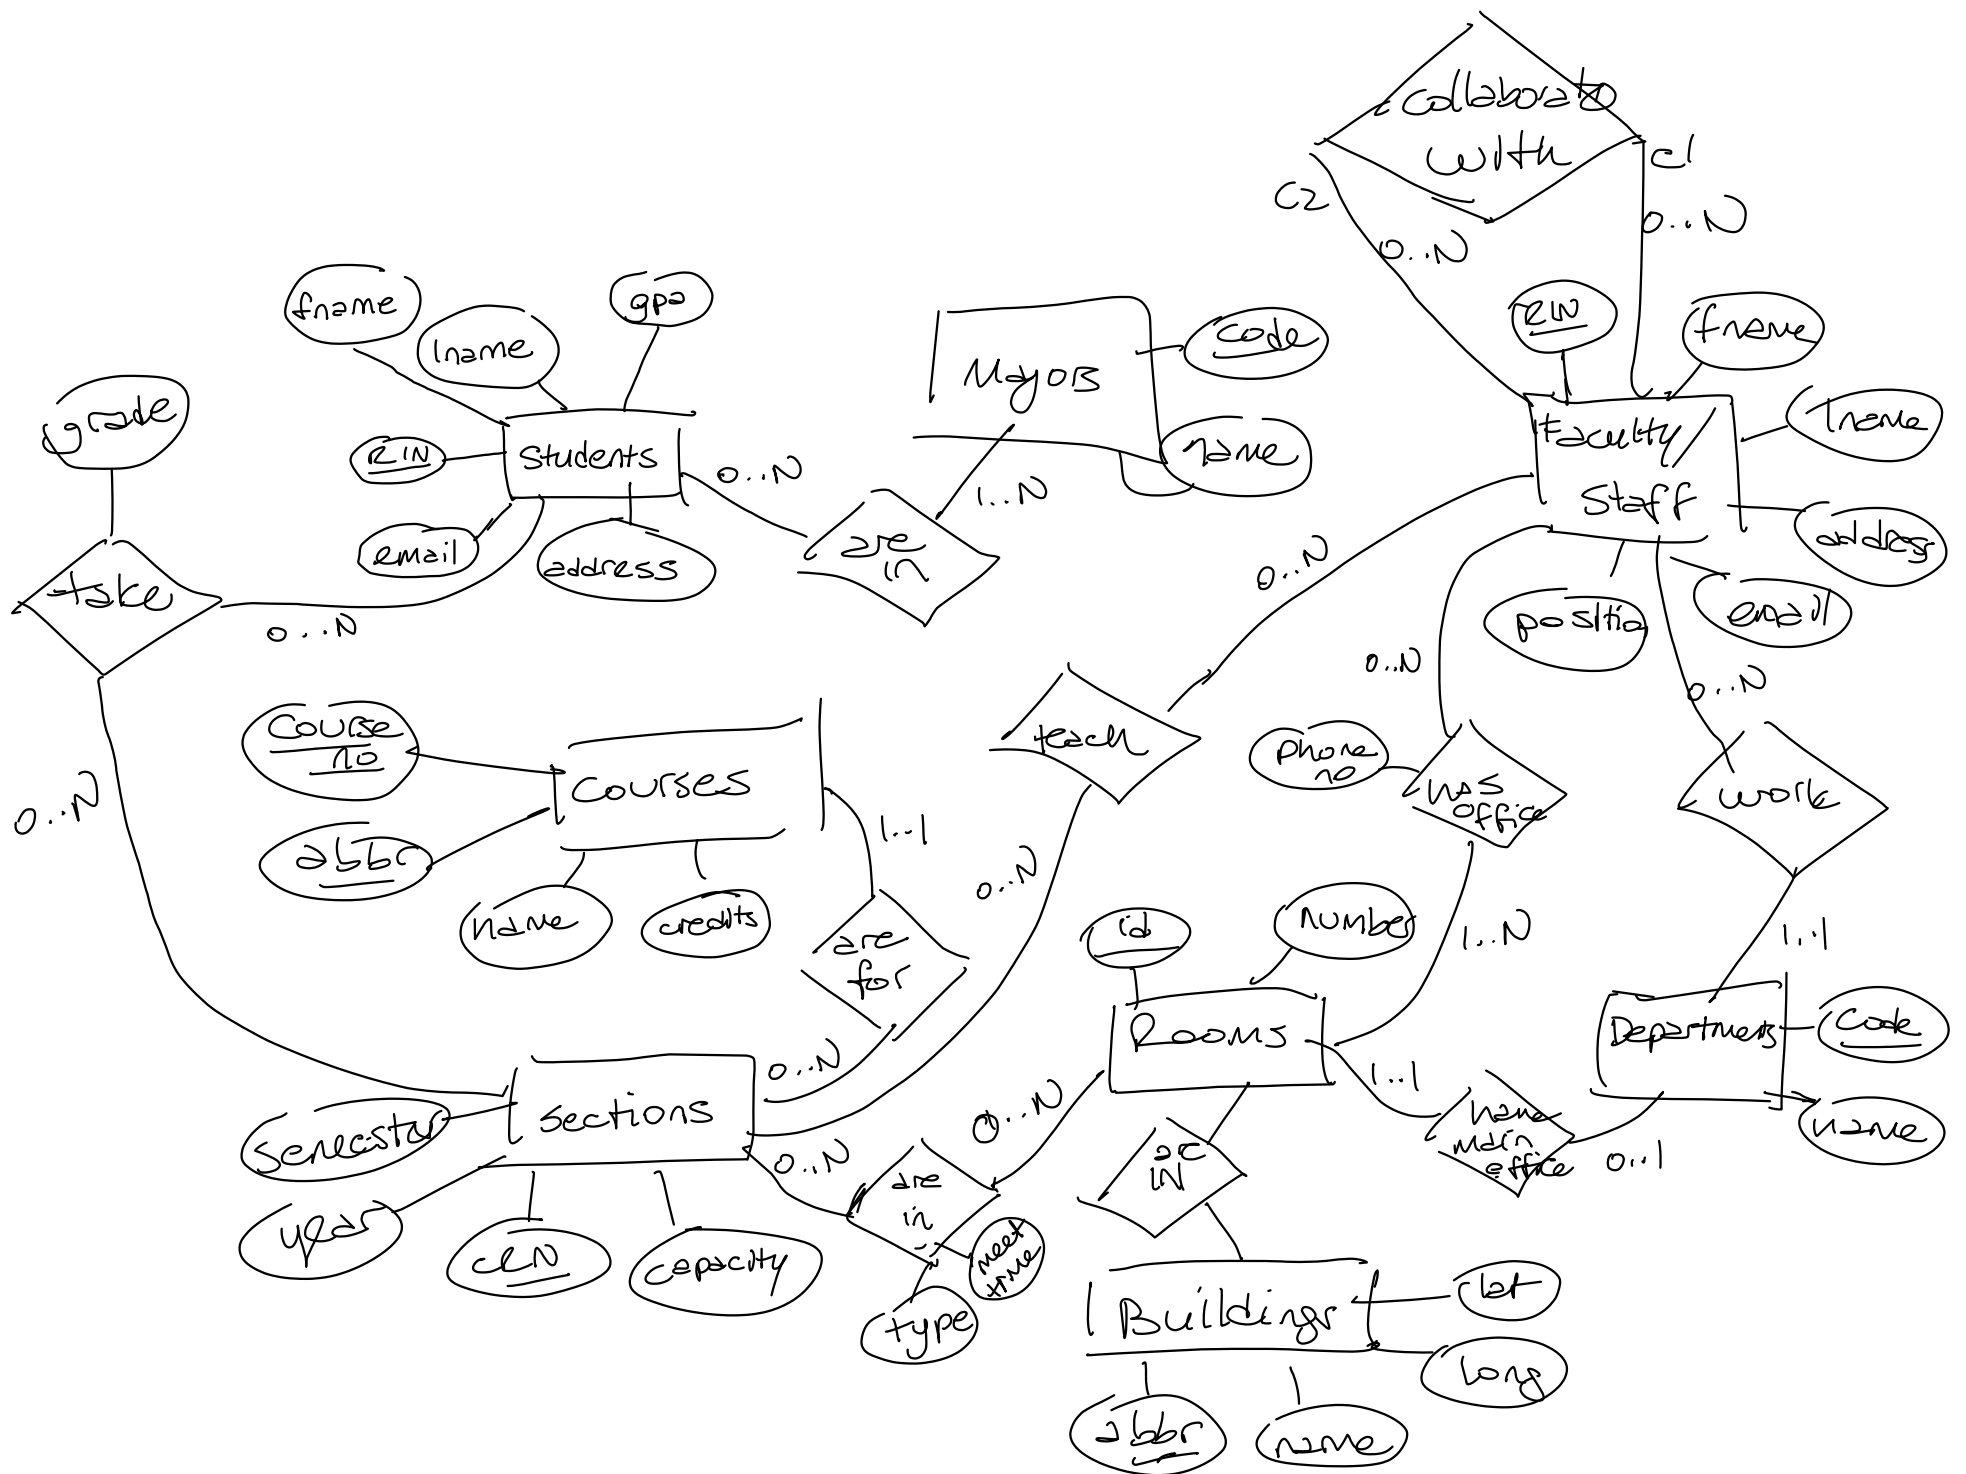 collaborate
with
c1
C2
0..N
0..N
fname
lname
gpa
RIN
Students
email
address
grade
take
0..N
0..N
Majors
code
name
0..N
1..N
are
in
RIN
fname
lname
Faculty/
Staff
address
email
position
0..N
0..N
0..N
teach
phone
no
has
office
work
Course
no
abbr
Courses
name
credits
1..1
are
for
0..N
0..N
id
number
Rooms
1..N
1..1
Departments
code
name
1..1
have
main
office
0..1
Sections
year
CRN
capacity
0..N
are
in
0..N
meet
time
type
are
IN
Buildings
lat
long
abbr
name